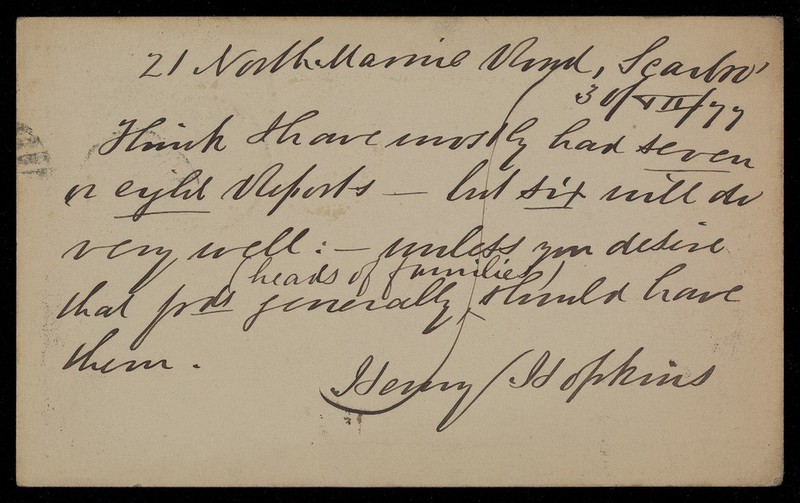 21 North Marine Road, Scarbro'
30/VII/77
Think I have mostly had seven
or eight Reports — but six will do
very well :— unless you desire
(heads of families)
that frds generally, should have
them.
Henry Hopkins